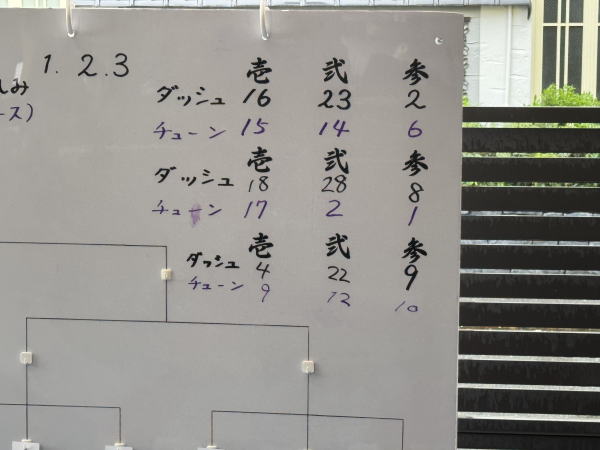 1. 2.3
壱 弐 参
しみ
ダッシュ 16 23 2
ース)
チューン 15 14 6
壱 弐 参
ダッシュ 18 28 8
チューン 17 2 1
壱 弐 参
ダッシュ 4 22 9
チューン 9 12 10